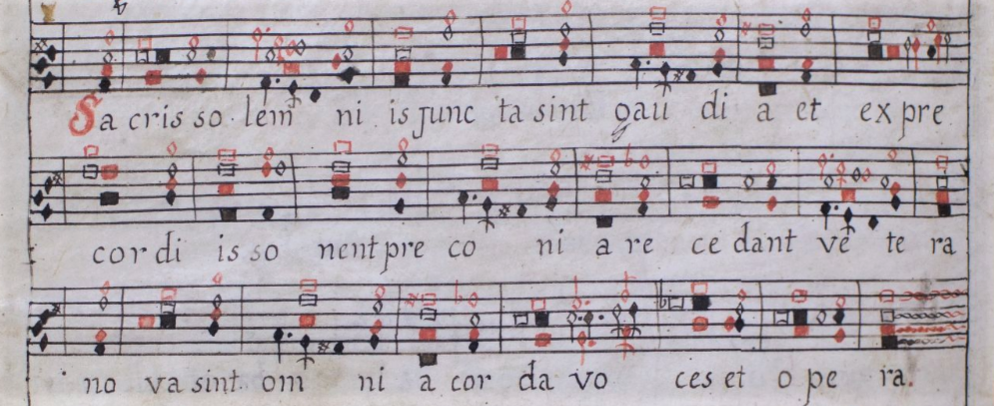 Sa cris so lem ni is junc ta sint gau di a et ex pre
cor di is so nent pre co ni a re ce dant ve te ra
no va sint om ni a cor da vo ces et o pe ra.